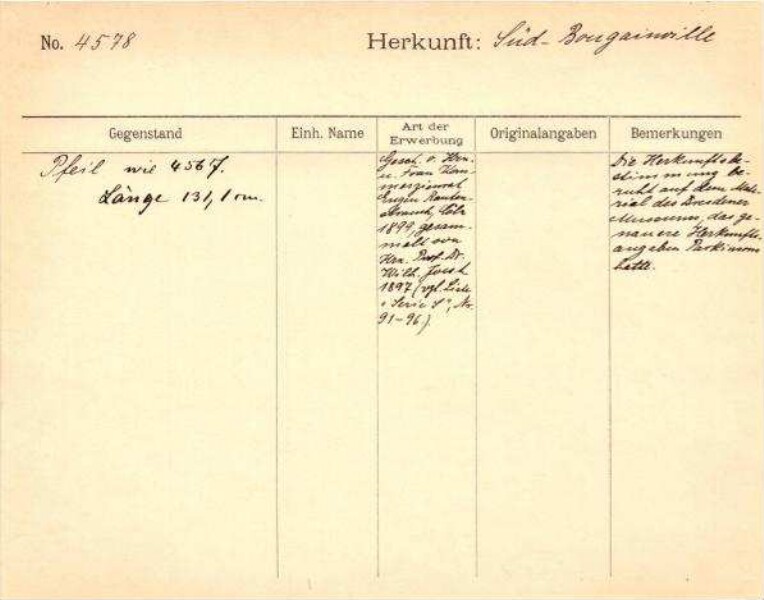 No. 4578
Herkunft: Süd-Bougainville
Gegenstand
Einh. Name
Art der
Erwerbung
Originalangaben
Bemerkungen
Pfeil wie 4567.
Länge 131,1 cm.
Gesch. v. Hrn.
u. Frau Kom-
merzienrat
Eugen Rauten-
strauch, Cöln
1899, gesam-
melt von
Hrn. Prof. Dr.
Wilh. Joest
1897 (vgl. Liste
"Serie S", Nr.
91-96).
Die Herkunftsbe-
stimmung be-
ruht auf dem Mate-
rial des Dresdener
Museums, das ge-
nauere Herkunfts-
angaben Parkinsons
hatte.